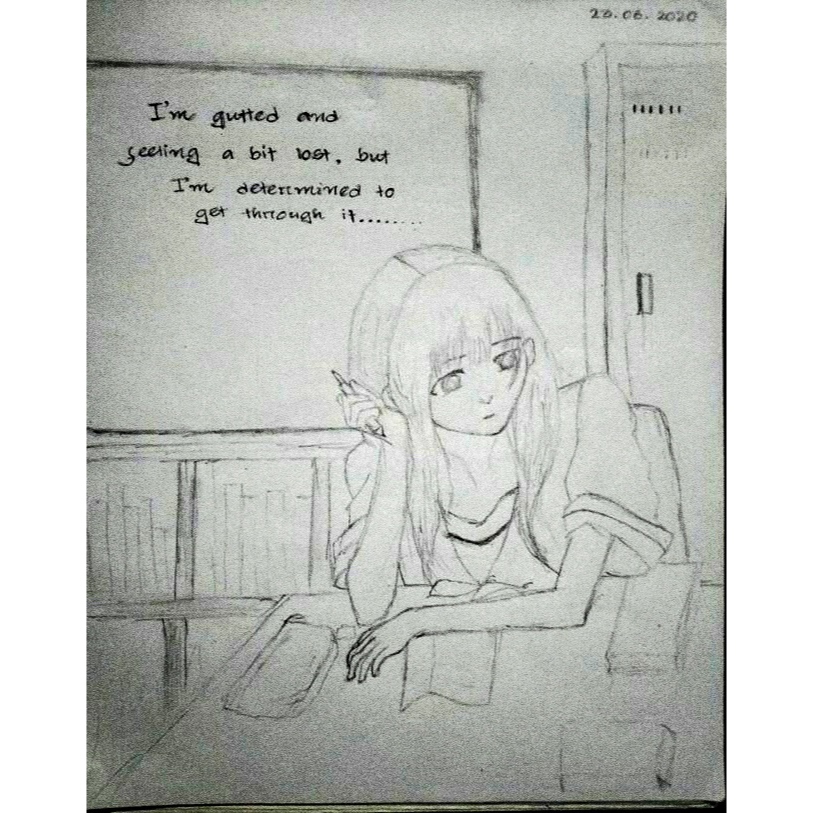 23.06.2020
I'm gutted and
feeling a bit lost, but
I'm determined to
get through it........